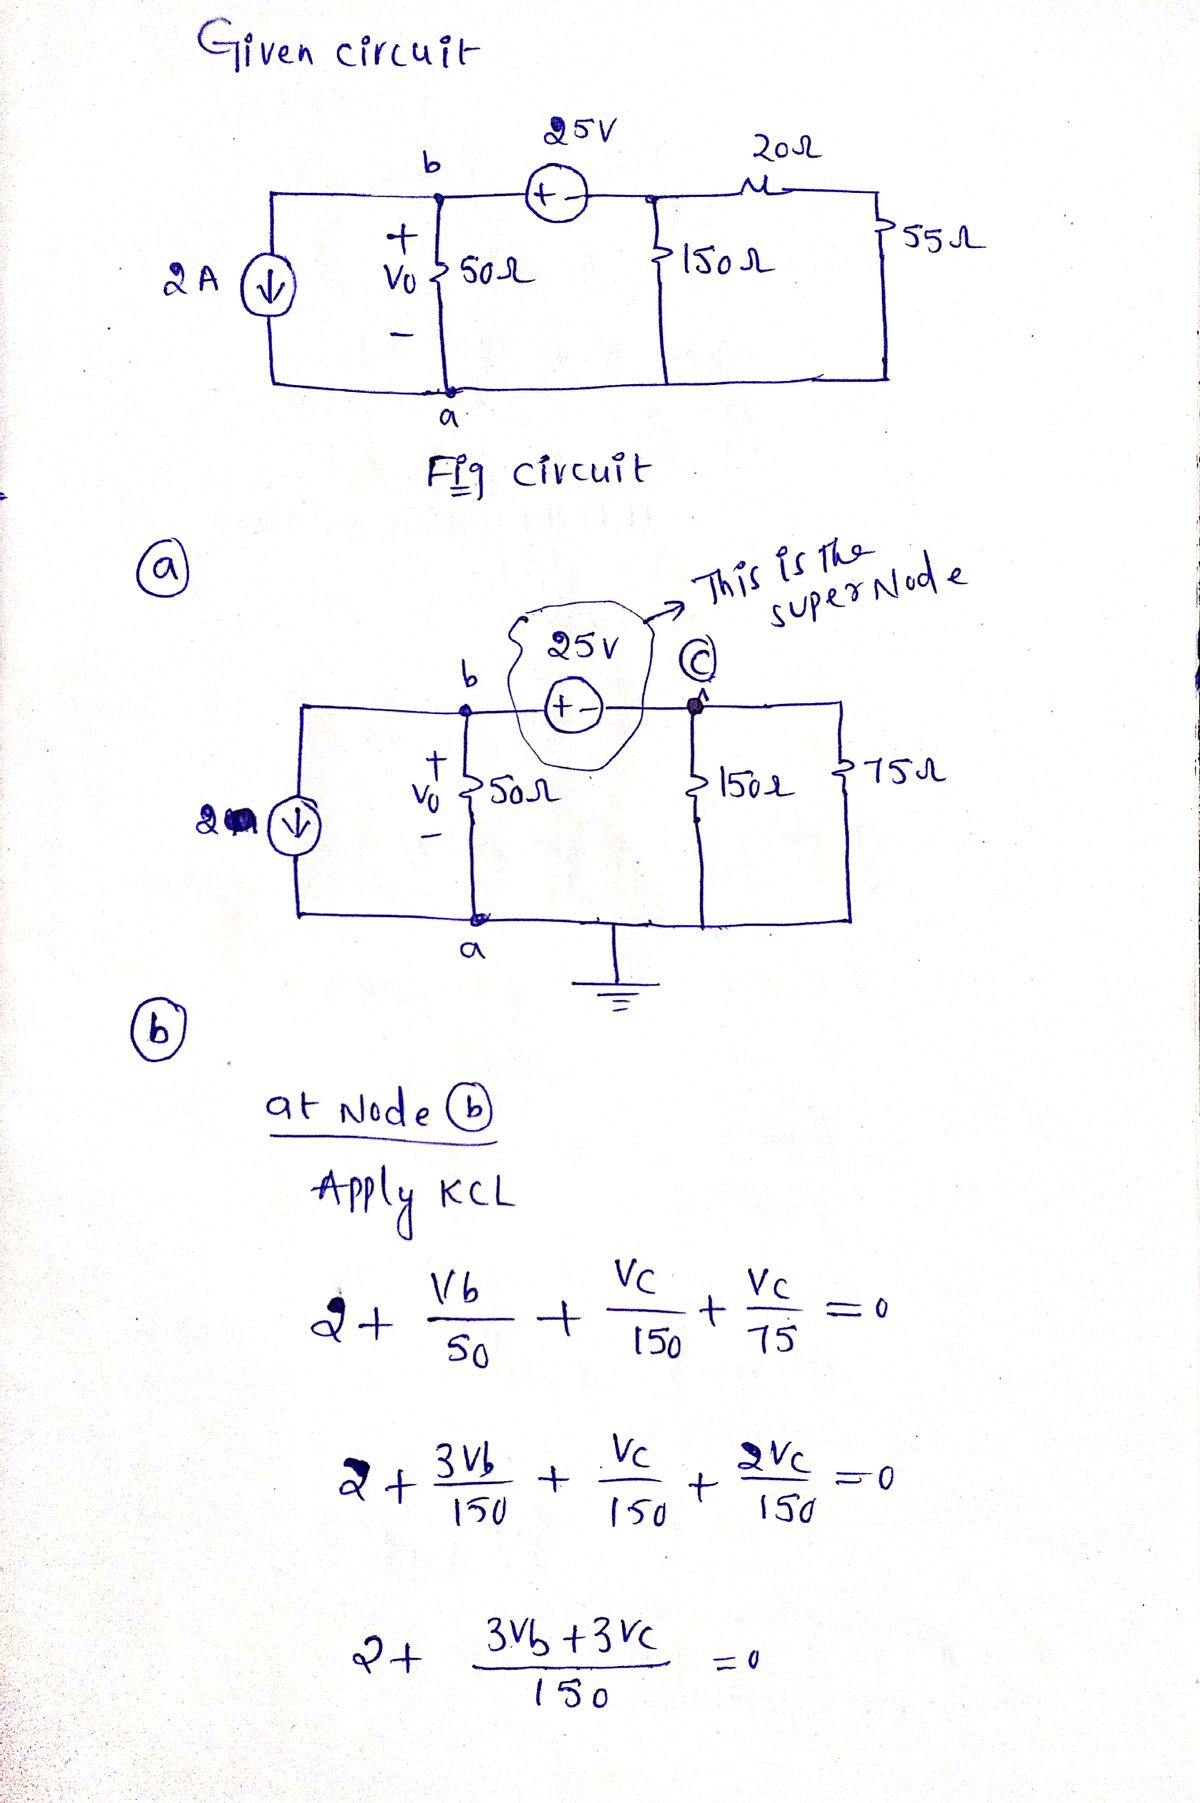 Given circuit
25V
b
20Ω
+
55Ω
+ -
150Ω
2A
Vo
50Ω
-
a
Fig circuit
(a)
This is the
superNode
25V
(C)
b
+ -
+
75Ω
Vo
50Ω
150Ω
2
-
a
(b)
at Node (b)
Apply KCL
2 + Vb/50 + Vc/150 + Vc/75 = 0
2 + 3Vb/150 + Vc/150 + 2Vc/150 = 0
2 + 3Vb+3Vc/150 = 0